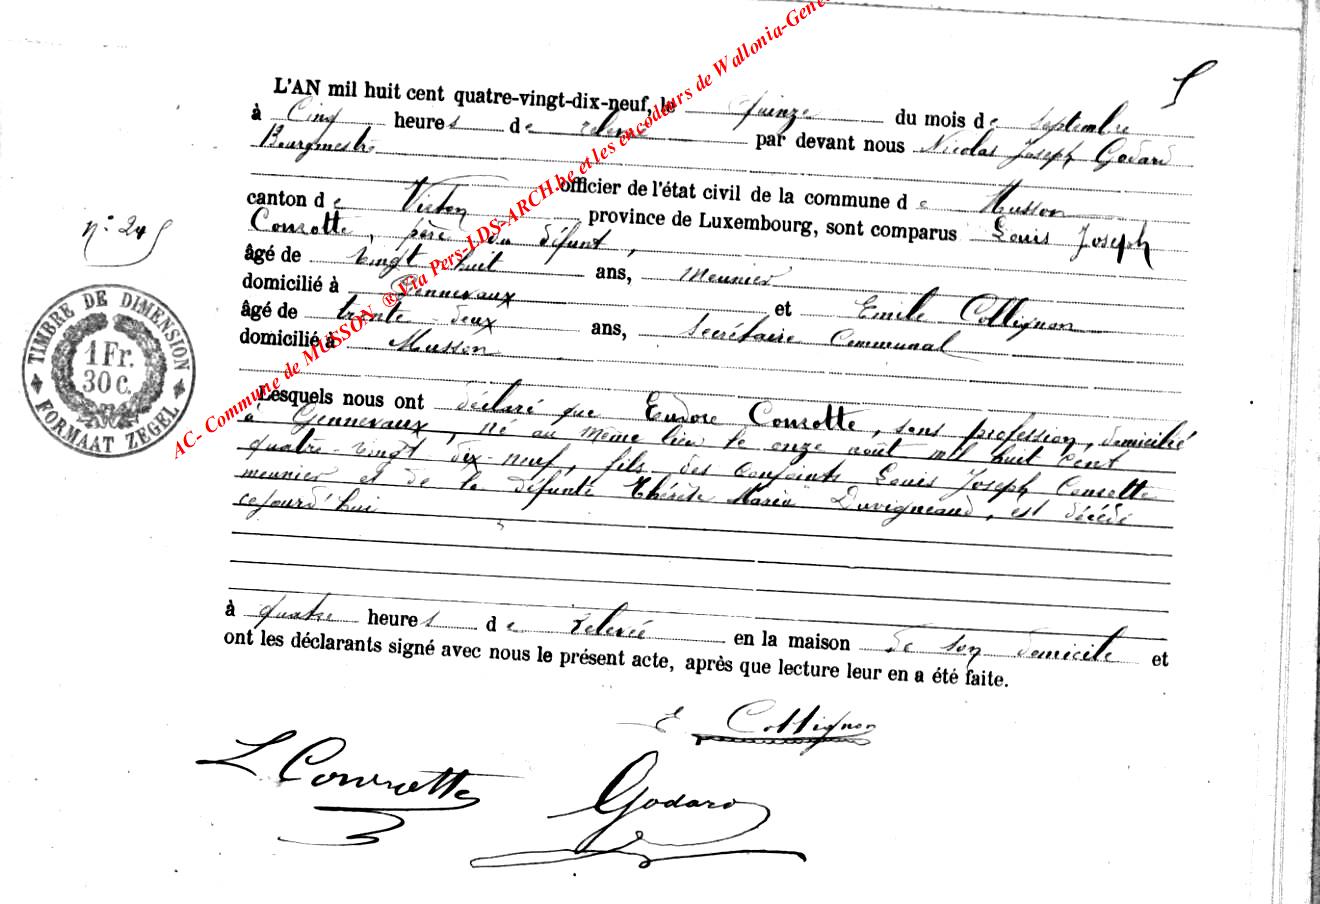 S
L'AN mil huit cent quatre-vingt-dix-neuf, le quinze du mois de septembre
à Cinq heures de relevée par devant nous Nicolas Joseph Godard
Bourgmestre
officier de l'état civil de la commune de Musson
canton de Virton province de Luxembourg, sont comparus Louis Joseph
Conrotte, père du défunt,
âgé de vingt huit ans, meunier
domicilié à Gennevaux et Emile Collignon
âgé de trente-deux ans, Secrétaire Communal
domicilié à Musson
n° 24
TIMBRE DE DIMENSION
1 Fr.
30 C.
FORMAAT ZEGEL
Lesquels nous ont déclaré que Eudore Conrotte, sans profession, domicilié
à Gennevaux, né au même lieu le onze août mil huit cent
quatre-vingt dix-neuf, fils des conjoints Louis Joseph Conrotte
meunier et de la défunte Thérèse Maria Duvigneaud, est décédé
cejourd'hui
à quatre heures de relevée en la maison de son domicile et
ont les déclarants signé avec nous le présent acte, après que lecture leur en a été faite.
E Collignon
L Conrotte
Godard
AC- Commune de MUSSON ® Via Pers-LDS-ARCH.be et les encodeurs de Wallonia-Gene